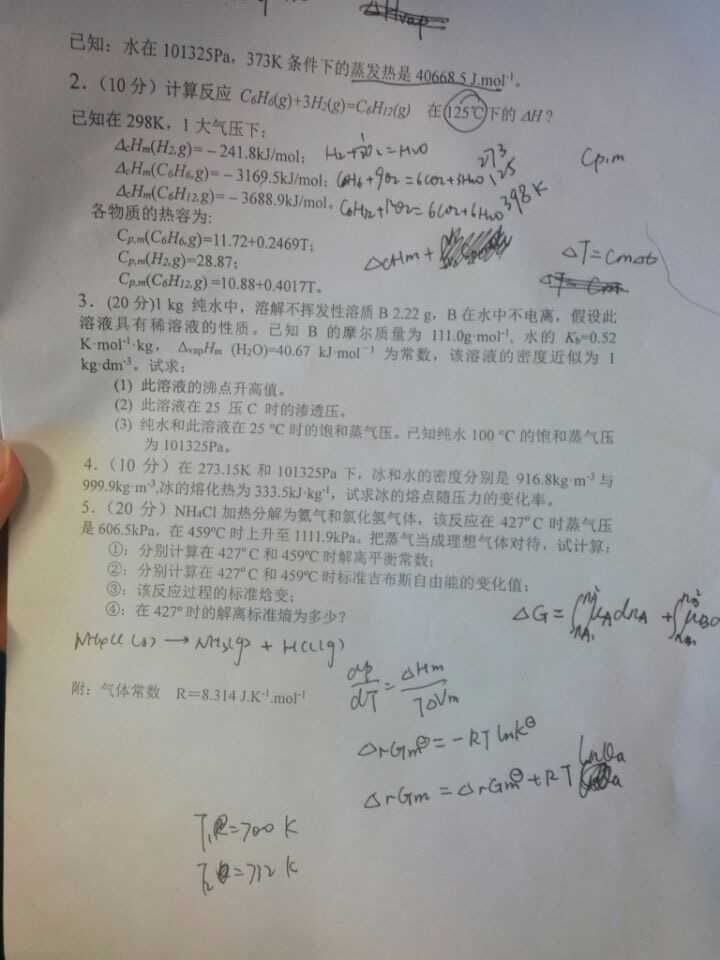 ΔHvap
已知：水在 101325Pa，373K 条件下的蒸发热是 40668.5 J.mol⁻¹。
2．（10 分）计算反应 C₆H₆(g)+3H₂(g)=C₆H₁₂(g) 在 125℃下的 ΔH？
已知在 298K，1 大气压下：
ΔcHm(H₂,g)=－241.8kJ/mol；
ΔcHm(C₆H₆,g)=－3169.5kJ/mol；
ΔcHm(C₆H₁₂,g)=－3688.9kJ/mol。
273
125
398K
Cp,m
各物质的热容为:
Cp,m(C₆H₆,g)=11.72+0.2469T；
Cp,m(H₂,g)=28.87；
Cp,m(C₆H₁₂,g) =10.88+0.4017T。
ΔcHm +
3．(20 分)1 kg 纯水中，溶解不挥发性溶质 B 2.22 g，B 在水中不电离，假设此
溶液具有稀溶液的性质。已知 B 的摩尔质量为 111.0g·mol⁻¹, 水的 Kb=0.52
K·mol⁻¹·kg， ΔvapHm (H₂O)=40.67 kJ·mol⁻¹ 为常数，该溶液的密度近似为 1
kg·dm⁻³。试求：
(1) 此溶液的沸点升高值。
(2) 此溶液在 25 压 C 时的渗透压。
(3) 纯水和此溶液在 25 ℃ 时的饱和蒸气压。已知纯水 100 ℃ 的饱和蒸气压
为 101325Pa。
4．（10 分）在 273.15K 和 101325Pa 下，冰和水的密度分别是 916.8kg·m⁻³ 与
999.9kg·m⁻³,冰的熔化热为 333.5kJ·kg⁻¹，试求冰的熔点随压力的变化率。
5．（20 分）NH₄Cl 加热分解为氨气和氯化氢气体，该反应在 427°C 时蒸气压
是 606.5kPa，在 459℃时上升至 1111.9kPa。把蒸气当成理想气体对待，试计算：
①：分别计算在 427°C 和 459℃时解离平衡常数；
②：分别计算在 427°C 和 459℃时标准吉布斯自由能的变化值；
③：该反应过程的标准焓变；
④：在 427°时的解离标准熵为多少？
NH₄Cl (s) → NH₃(g) + HCl(g)
附：气体常数 R＝8.314 J.K⁻¹.mol⁻¹
ΔrGm⊖ = -RT lnK⊖
ΔrGm = ΔrGm⊖ + RT lnQa
T₁ = 700 K
T₂ = 732 K